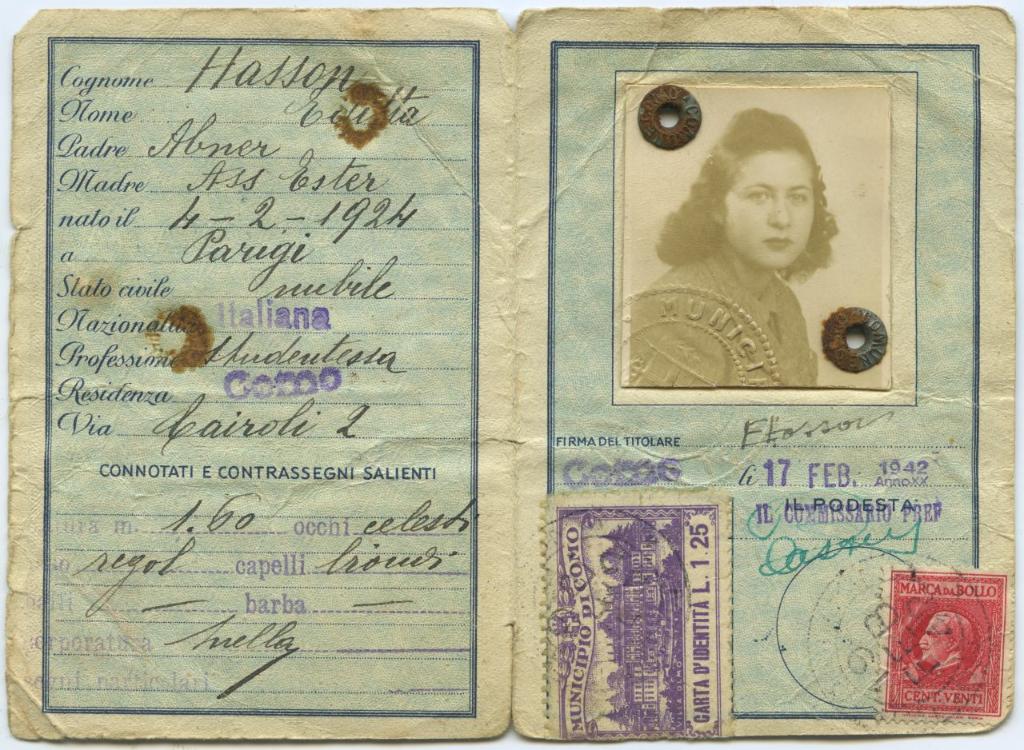 Cognome Hasson
Nome Editta
Padre Abner
Madre Ass Ester
nato il 4-2-1924
a Parigi
Stato civile nubile
Nazionalità Italiana
Professione studentessa
Residenza Como
Via Cairoli 2
CONNOTATI E CONTRASSEGNI SALIENTI
m. 1.60 occhi celesti
regol capelli biondi
— barba —
corporatura snella
segni particolari
MUNICI
FIRMA DEL TITOLARE EHasson
Como li 17 FEB. 1942
Anno XX
IL PODESTÀ
IL COMMISSARIO PREF
MUNICIPIO DI COMO
CARTA D'IDENTITÀ L. 1.25
MARCA DA BOLLO
CENT. VENTI